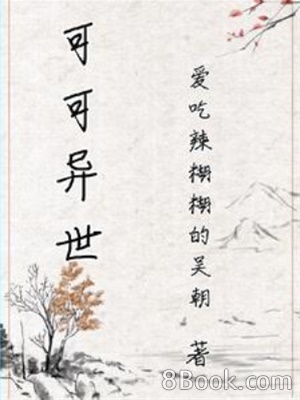 可可异世
爱吃辣糊糊的吴朝 著
8Book.com